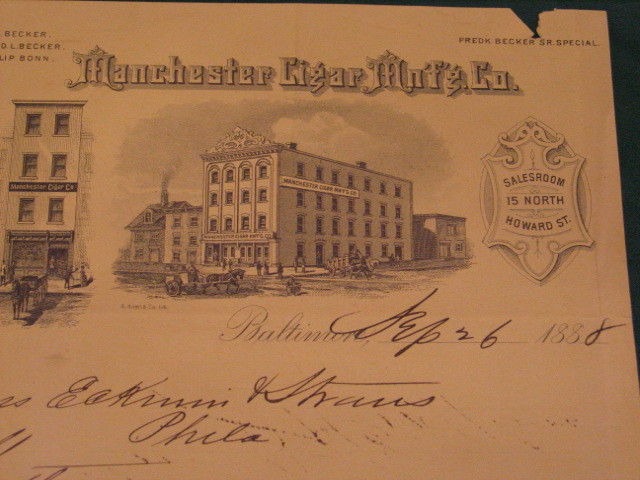 . BECKER.
D. L. BECKER.
LIP BONN.
PREDK. BECKER SR. SPECIAL.
Manchester Cigar Mnf'g. Co.
Manchester Cigar Co
MANCHESTER CIGAR MNF'G. CO.
MANCHESTER CIGAR MNF'G. CO.
SALESROOM
15 NORTH
HOWARD ST.
Baltimore, Sep 26 1888
& Straus
Phila.